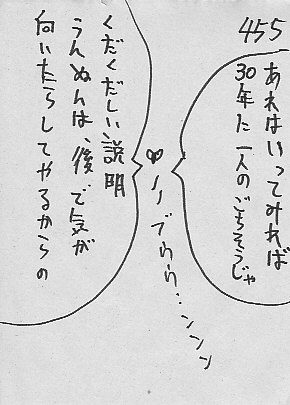 455
あれはいってみれば
30年に一人のごちそうじゃ
ノノブわわ・・ンンン
くだくだしい説明
うんぬんは、後で気が
向いたらしてやるからの